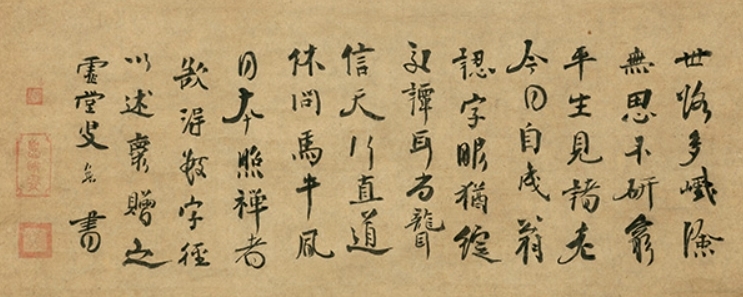 世路多巇嶮
無思不研窮
平生見諸老
今日自成翁
認字眼猶綻
交譚耳尚聾
信天行直道
休問馬牛風
日本照禪者
欲得數字徑
以述懷贈之
虛堂叟智愚書